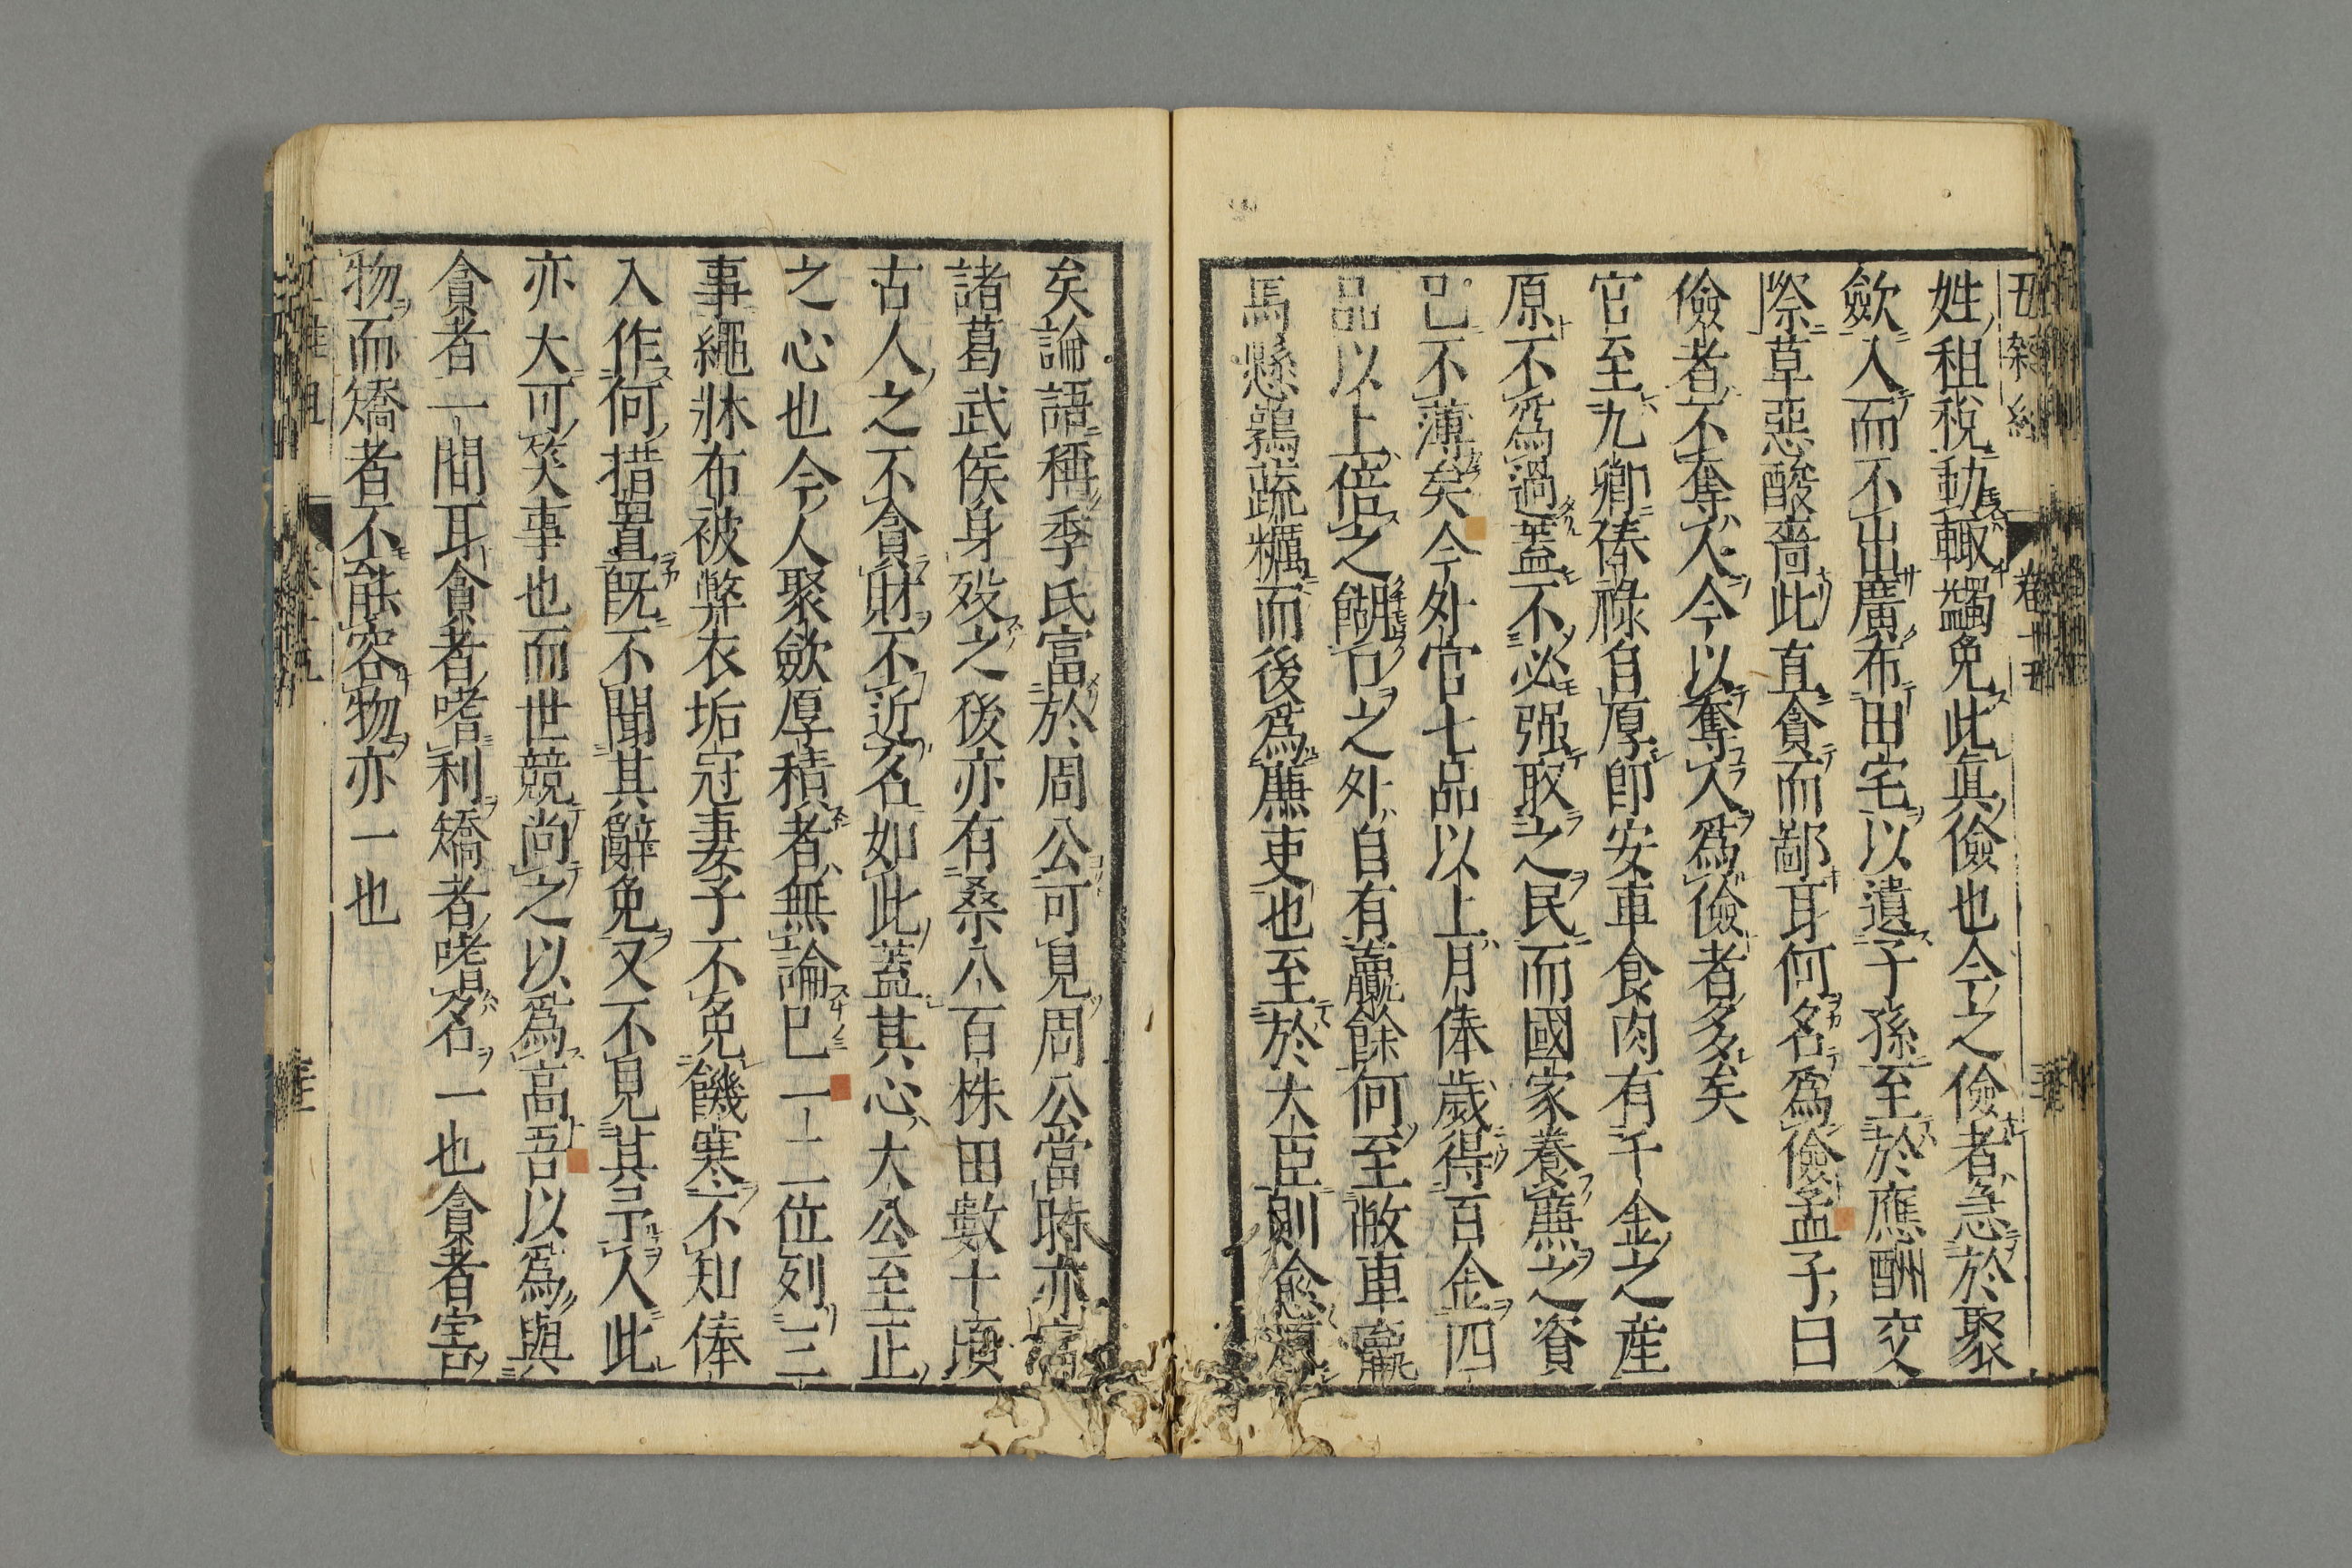 五雜組 卷十五
姓租稅動輒蠲免此眞儉也今之儉者急於聚
歛人而不出廣布田宅以遺子孫至於應酬交
際草惡酸嗇此直貪而鄙耳何名爲儉孟子曰
儉者不奪人今以奪人爲儉者多矣
官至九卿俸祿自厚卽安車食肉有千金之產
原不爲過蓋不必强取之民而國家養廉之資
已不薄矣今外官七品以上月俸歲得百金四
品以上倍之餬口之外自有贏餘何至敝車羸
馬懸鶉蔬糲而後爲廉吏也至於大臣則愈
矣論語稱季氏富於周公可見周公當時亦富
諸葛武侯身歿之後亦有桑八百株田數十頃
古人之不貪財不近名如此蓋其心大公至正
之心也今人聚歛厚積者無論已一二位列三
事繩牀布被弊衣垢冠妻子不免饑寒不知俸
入作何措置旣不聞其辭免又不見其予人此
亦大可笑事也而世競尚之以爲高吾以爲與
貪者一間耳貪者嗜利矯者嗜名一也貪者害
物而矯者不能容物亦一也